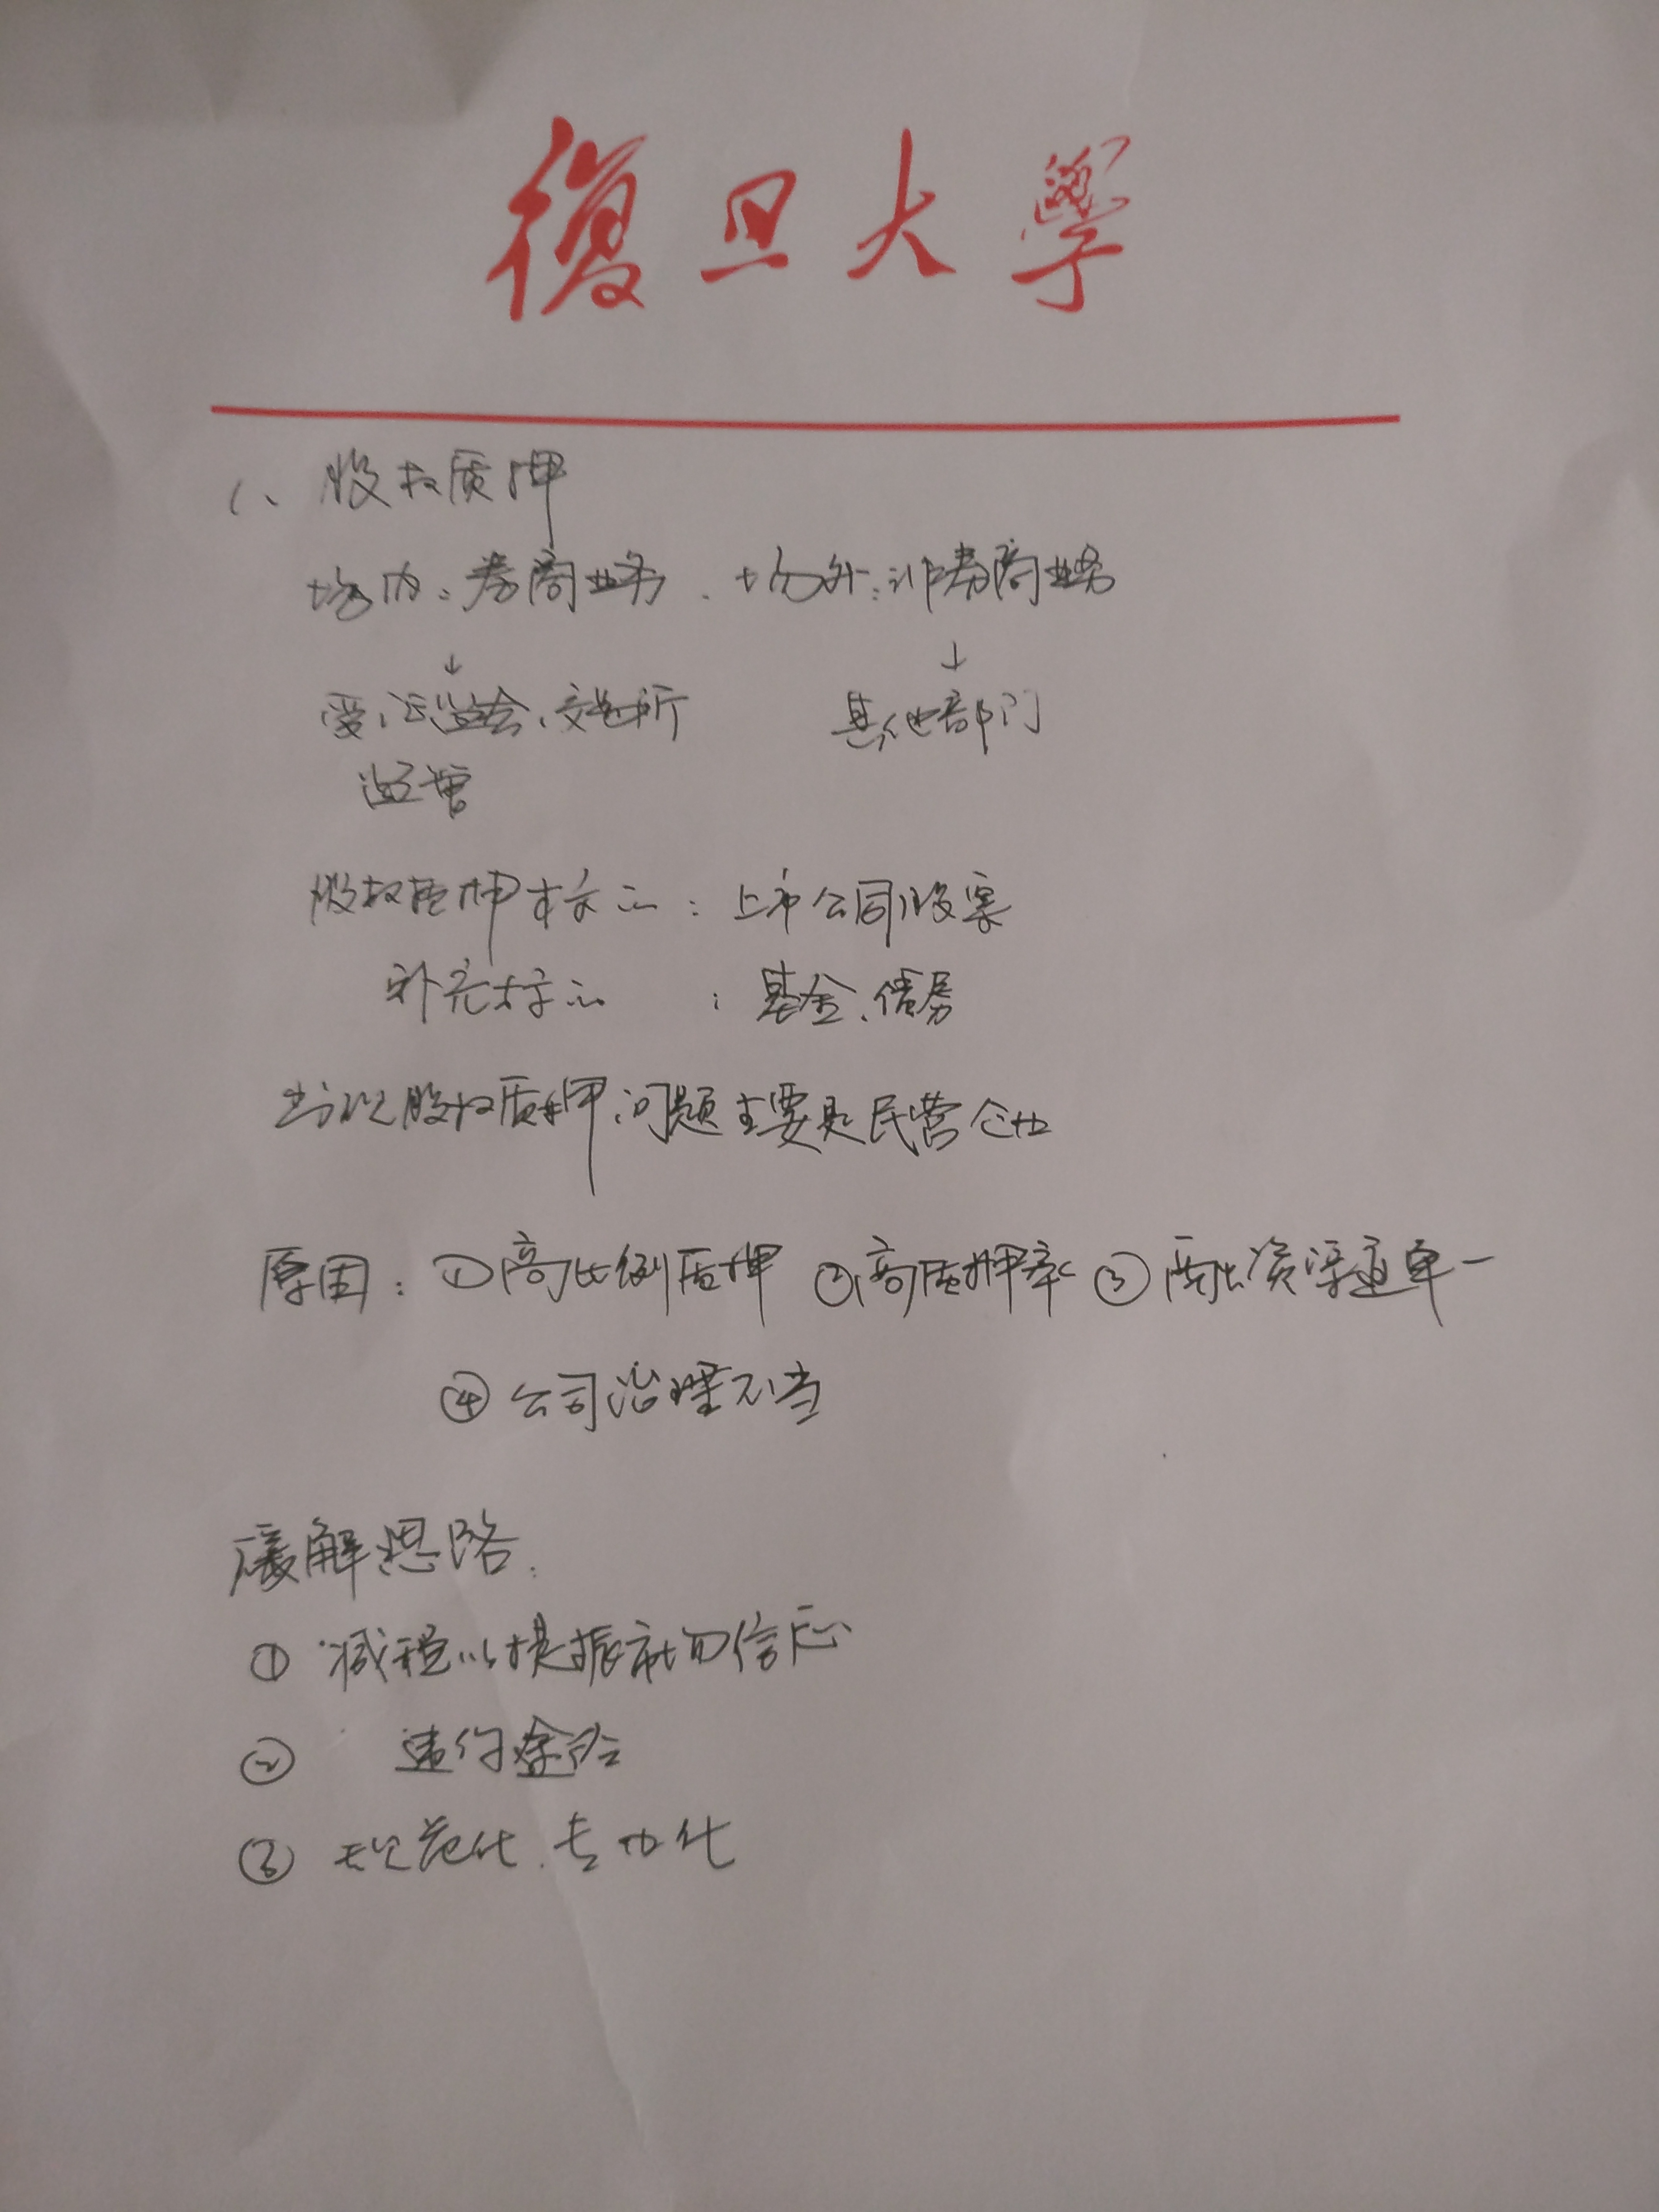 復旦大學
1、股权质押
场内：券商业务、场外：非券商业务
↓ ↓
受证监会、交易所 其他部门
监管
股权质押标的：上市公司股票
补充标的：基金、债券
出现股权质押问题主要是民营企业
原因：①高比例质押 ②高质押率 ③融资渠道单一
④公司治理不当
缓解思路：
①减税以提振市场信心
②违约
③规范化、专业化